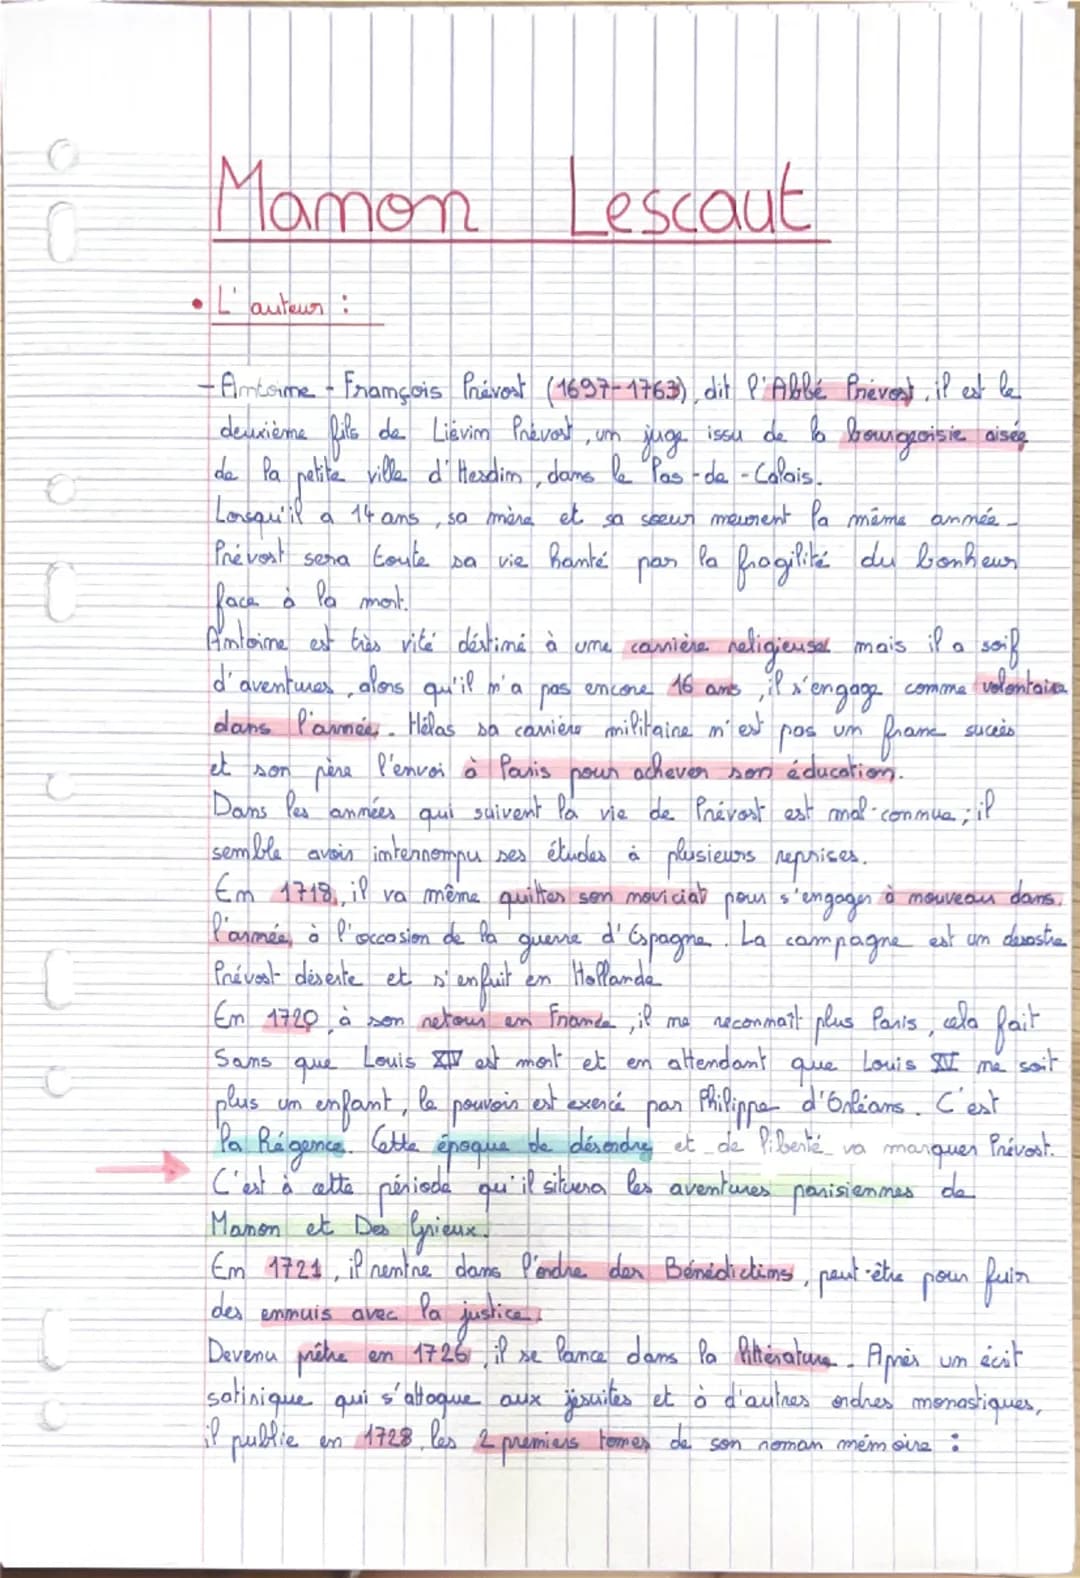 Manon Lescaut
• L'auteur :
- Antoine - François Prévost (1697-1763), dit l'Abbé Prévost, il est le
deuxième fils de Liévin Prévost, un juge issu de la bourgeoisie aisée
de la petite ville d'Hesdin, dans le Pas-de-Calais.
Lorsqu'il a 14 ans, sa mère et sa soeur meurent la même année.
Prévost sera toute sa vie hanté par la fragilité du bonheur
face à la mort.
Antoine est très vité déstiné à une carrière religieuse mais il a soif
d'aventures, alors qu'il n'a pas encore 16 ans, il s'engage comme volontaire
dans l'armée. Hélas sa carrière militaire n'est pas un franc succès
et son père l'envoi à Paris pour achever son éducation.
Dans les années qui suivent la vie de Prévost est mal-connue ; il
semble avoir interrompu ses études à plusieurs reprises.
En 1718, il va même quitter son noviciat pour s'engager à nouveau dans
l'armée, à l'occasion de la guerre d'Espagne. La campagne est un desastre
Prévost déserte et s'enfuit en Hollande
En 1720, à son retour en France, il ne reconnaît plus Paris, cela fait
Sans que Louis XIV est mort et en attendant que Louis XV ne soit
plus un enfant, le pouvoir est exercé par Philippe d'Orléans. C'est
la Régence. Cette époque de désordre et de liberté va marquer Prévost.
C'est à cette période qu'il situera les aventures parisiennes de
Manon et Des Grieux.
En 1721, il rentre dans l'ordre des Bénédictins, peut-être pour fuir
des ennuis avec la justice.
Devenu prêtre en 1726, il se lance dans la littérature. Après un écrit
satirique qui s'attaque aux jésuites et à d'autres ordres monastiques,
il publie en 1728 les 2 premiers tomes de son roman mémoire :